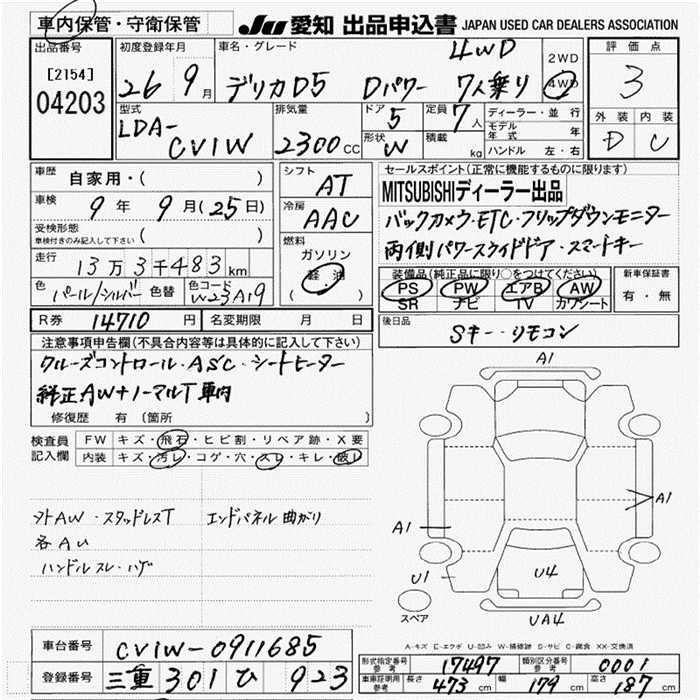 車内保管・守衛保管
JU 愛知 出品申込書 JAPAN USED CAR DEALERS ASSOCIATION
出品番号
[2154]
04203
初度登録年月
26 9月
車名・グレード
4WD
デリカD5 Dパワー 7人乗り
2WD
4WD
評価点
3
外装 内装
D C
型式
LDA-
CV1W
排気量
2300cc
ドア
5
形状
W
定員
7人
積載
kg
ディーラー・並行
モデル年式 年
ハンドル 左・右
車歴
自家用・( )
車検
9年 9月(25日)
受検形態
車検付きのみ記入して下さい ( )
走行
13万3千483km
色
パール/シルバー 色替
色コード
W23A19
シフト
AT
冷房
AAC
燃料
ガソリン
軽油
( )
セールスポイント(正常に機能するものに限ります)
MITSUBISHIディーラー出品
バックカメラ・ETC・フリップダウンモニター
両側パワースライドドア・スマートキー
装備品(純正品に限り○をつけてください)
PS PW エアB AW
SR ナビ TV カワシート
新車保証書
有・無
R券 14710円 名変期限 月 日
後日品
Sキー・リモコン
注意事項申告欄(不具合内容等は具体的に記入して下さい)
クルーズコントロール・ASC・シートヒーター
純正AW+ノーマルT車内
修復歴 有 〔箇所 〕
検査員記入欄
FW キズ・飛石・ヒビ割・リペア跡・X要
内装 キズ・汚レ・コゲ・穴・スレ・キレ・破レ
外AW・スタッドレスT エンドパネル曲がり
各AU
ハンドルスレ・ハゲ
A1
A1
A1
U1
U4
UA4
スペア
A-キズ E-エクボ U-凹み W-補修跡 S-サビ C-腐食 XX-交換済
車台番号 CV1W-0911685
登録番号 三重 301 ひ 923
形式指定番号 参考 17497 類別区分番号 参考 0001
車庫証明用 参考 長さ 473cm 幅 179cm 高さ 187cm